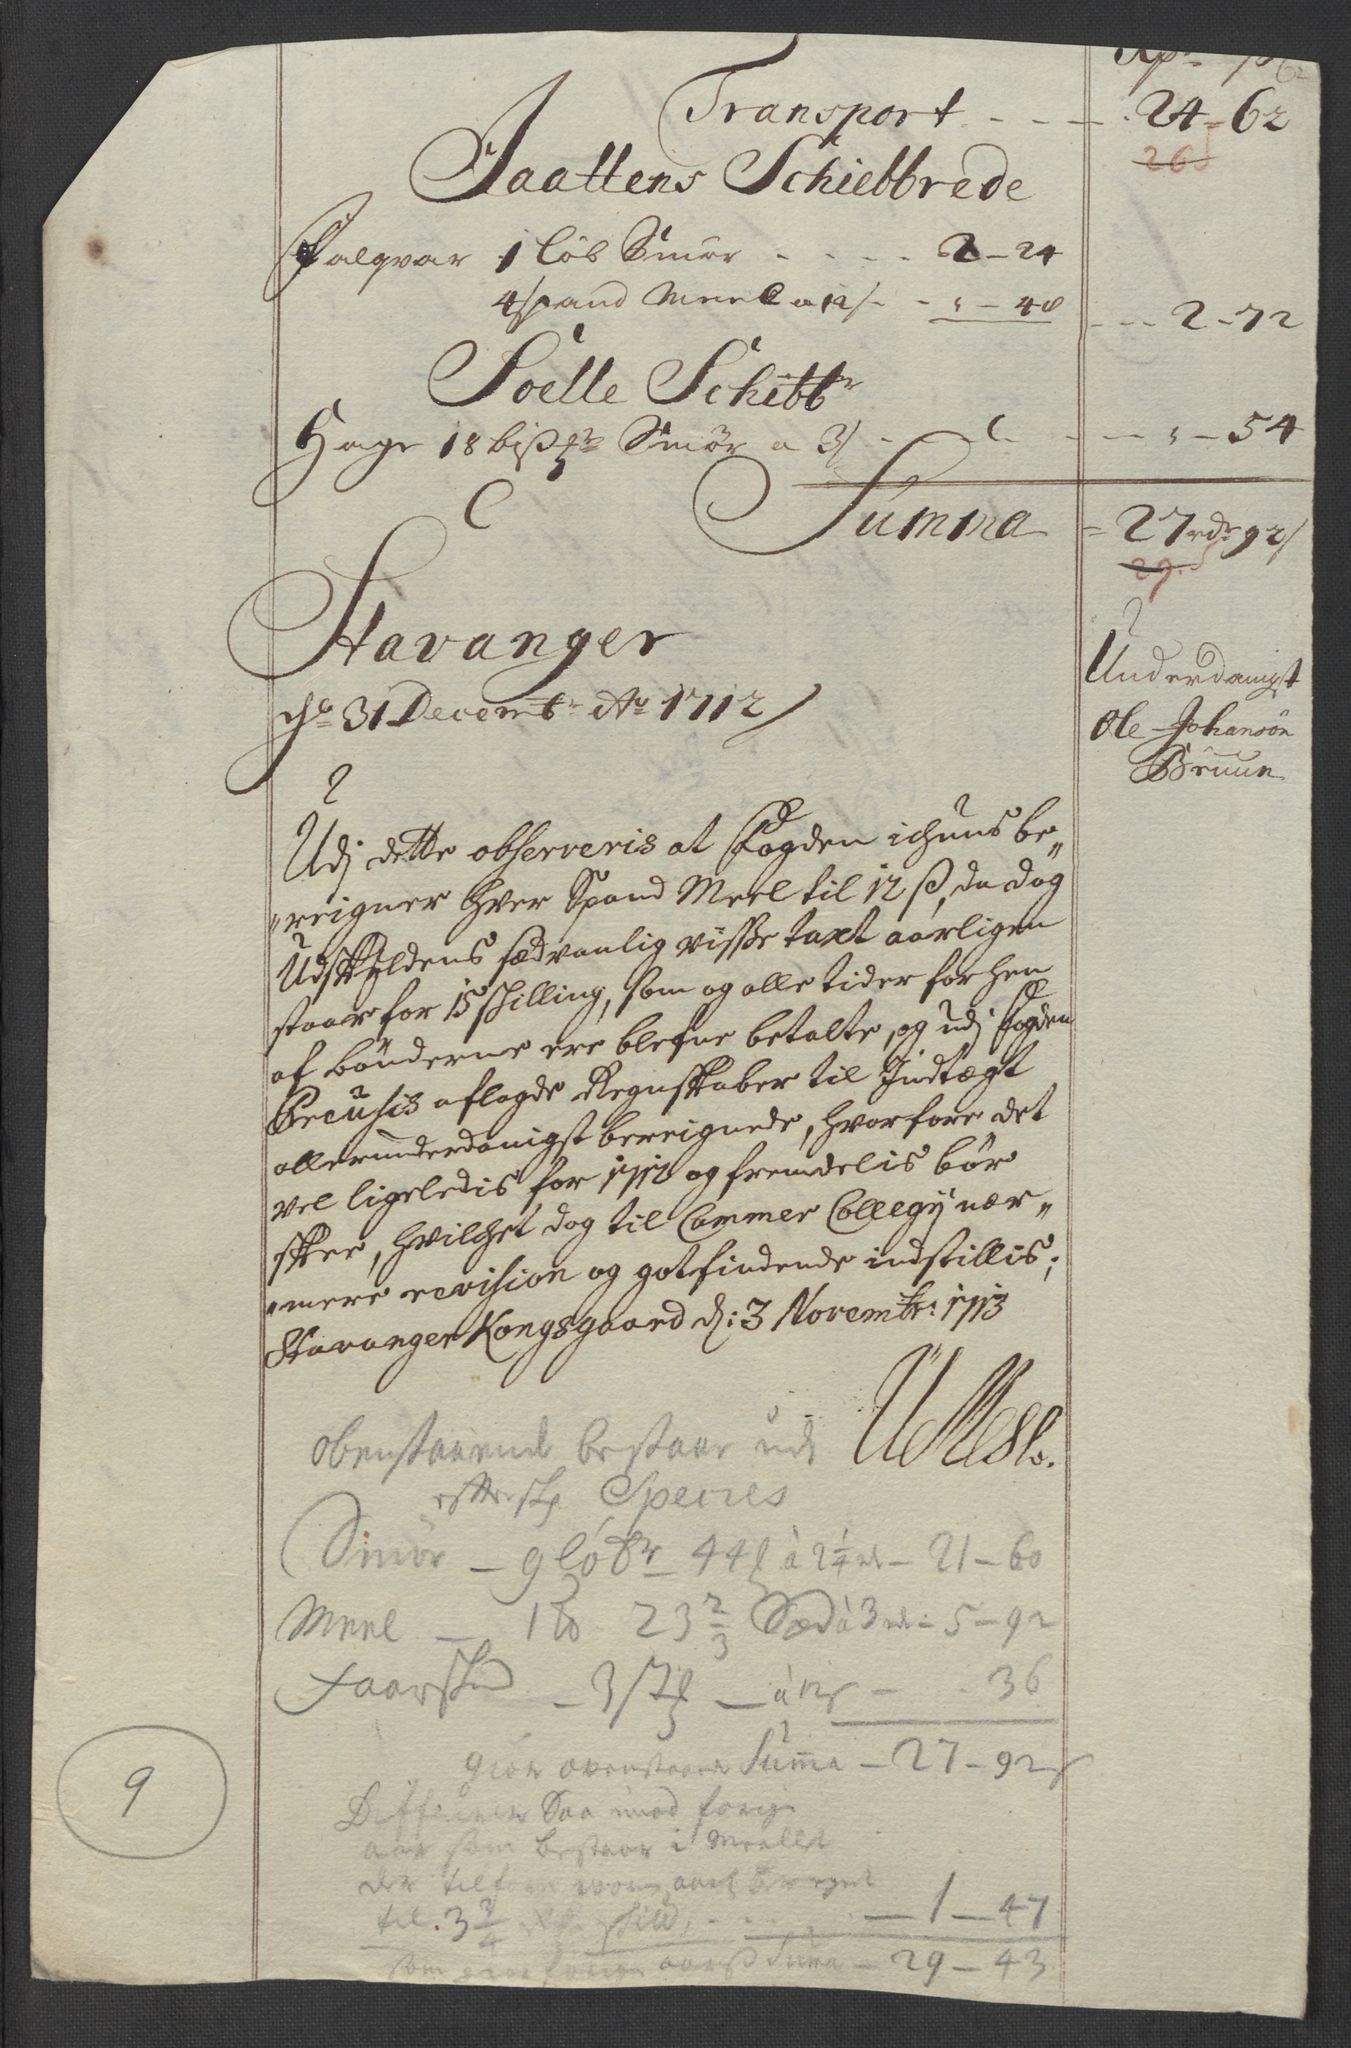 Rdr ß
Transport - - - 24 - 62
26
Jaattens Schibbrede
Falqvar 1 løb Smør - - - - 2 - 24
4 spand Meel a 12 ß - - " - 48 - - - 2 - 72
Soelle Schibbr
Hage 18 bißpr Smør a 3 ß - - - - - " - 54
Summa = 27 rdr 92 ß
29
Stavanger
dho 31 Decembr Ao 1712
Underdanigst
Ole Johansøn
Bruun
Udj dette observeris at Fogden ichuns be„
„reigner hver Spand Meel til 12 ß, da dog
Udskyldens sædvanlig visse taxt aarligen
staar for 15 skilling, som og alle tider forhen
af bønderne ere blefne betalte, og udj Fogden
Pecusis aflagde Regnskaber til Indtægt
allerunderdanigst bereignede, hvorfore det
vel ligeledis for 1712 og fremdelis bør
skee, hvilchet dog til Cammer Collegij nær„
„mere revision og gotfindende indstillis;
Stavanger Kongsgaard d: 3 Novembr: 1713
obenstaaende bestaar udj
effterskr Species
Smør - 9 løbr 44 à 2 1/4 rdr - 21 - 60
Meel - 1 23 2/3 à 3 rdr - 5 - 92
Faarskind - 3 st - à 12 ß - - 36
giør ovenstaaende Summa - 27 - 92 ß
Differerer Saa imod forige
aar som bestaar i Meellet
der tilforn
til 3 3/4 - - 1 - 47
som giør forige aarß Suma - 29 - 43
9